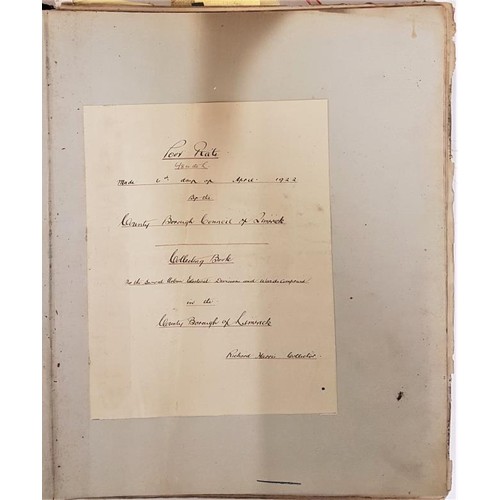 Poor Rate
Made 6th day of April 1922
By the
County Borough Council of Limerick
Collecting Book
for the Several Electoral Divisions and Wards Comprised
in the
County Borough of Limerick
Richard Collector